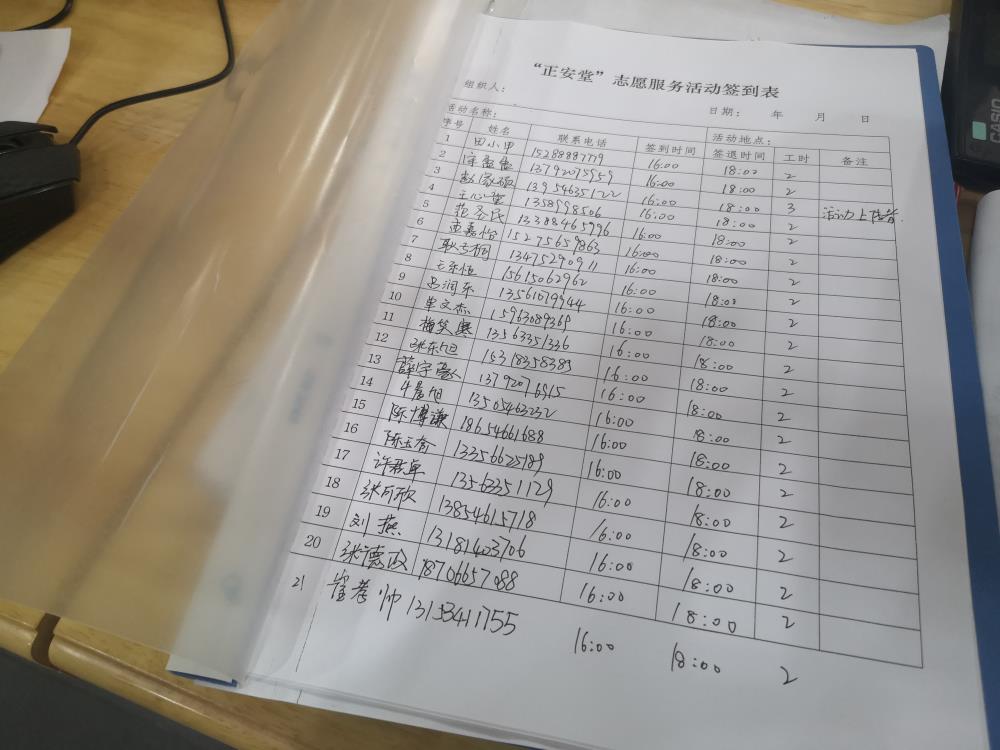 “正安堂”志愿服务活动签到表
组织人： 日期： 年 月 日
活动名称： 活动地点：
序号 姓名 联系电话 签到时间 签退时间 工时 备注
1 田小甲 15288887779 16:00 18:00 2
2 13792075959 16:00 18:00 2
3 139546351222 16:00 18:00 3 活动上传者
4 王心莹 1358998506 16:00 18:00 2
5 范圣氏 13388465996 16:00 18:00 2
6 孟嘉怡 15275659863 16:00 18:00 2
7 13475290911 16:00 18:00 2
8 王乐恒 15615062962 16:00 18:00 2
9 吕润东 13561079944 16:00 18:00 2
10 单文杰 15963089369 16:00 18:00 2
11 梅笑寒 13563351336 16:00 18:00 2
12 张东旭 15318358389 16:00 18:00 2
13 13792076915 16:00 18:00 2
14 牛晨旭 13505463232 16:00 18:00 2
15 陈博谦 18654661688 16:00 18:00 2
16 陈玉奇 13356625189 16:00 18:00 2
17 许程卓 13563351129 16:00 18:00 2
18 张可欣 13854615718 16:00 18:00 2
19 刘燕 13181403706 16:00 18:00 2
20 张德政 18706657088 16:00 18:00 2
21 崔孝帅 13153411755 16:00 18:00 2
CASIO